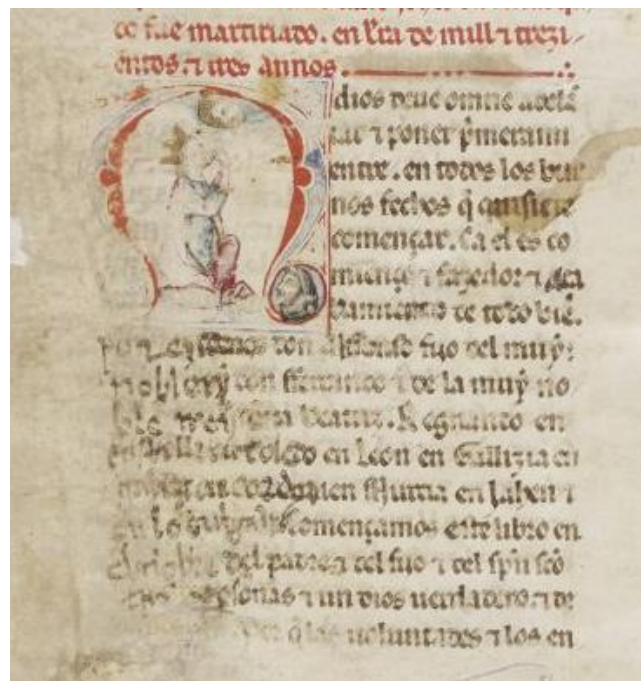 co fue martiriado. en Era de mill ⁊ trezi-
entos. ⁊ tres annos.
dios deue omne adelã
tar ⁊ poner p̃meram
entre. en todos los bue
nos fechos q̃ quisiere
començar. Ca el es co
mienço ⁊ fazedor ⁊ aca
bamiento de todo bié.
don alffonso fijo del muẏ
noble reẏ don fferrando ⁊ de la muẏ no
ble reẏna beatriz. Regnando en
castiella en toledo en Leon en Gallizia en
en cordoua en Murcia en Jahen ⁊
en el algarbe Començamos este libro en
del padre ⁊ del fijo ⁊ del sp̃u scõ
personas ⁊ un dios uerdadero. ⁊ de
q̃ las uoluntades ⁊ los en